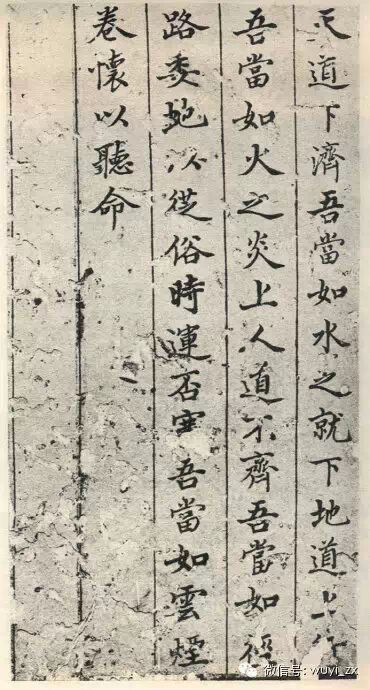 天道下濟吾當如水之就下地道上行
吾當如火之炎上人道不齊吾當如徑
路委虵以從俗時運否塞吾當如雲煙
卷懷以聽命
微信号: wuyi_zx